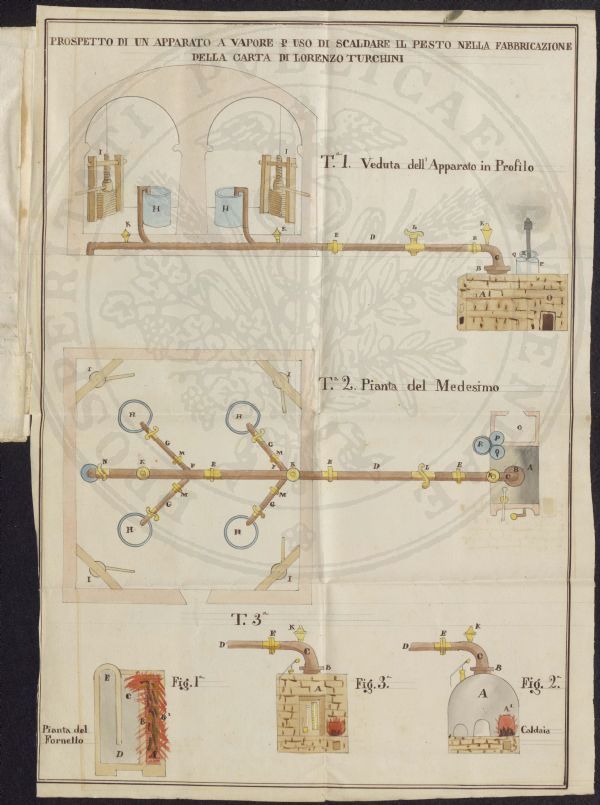 PROSPETTO DI UN APPARATO A VAPORE P USO DI SCALDARE IL PESTO NELLA FABBRICAZIONE
DELLA CARTA DI LORENZO TURCHINI
T.a 1. Veduta dell'Apparato in Profilo
I
I
H
H
K
K
E
D
L
E
K
C
B
A1
O
T.a 2. Pianta del Medesimo
I
I
H
H
G
G
M
M
N
K
F
E
F
K
E
D
L
E
C
B
A
P
Q
O
M
M
G
G
H
H
I
I
T. 3a
D
E
K
C
B
A
D
E
K
C
B
A
A1
E
C
B
B1
D
A
Fig. 1a
Fig. 3a
Fig. 2a
Pianta del
Fornetto
Caldaia